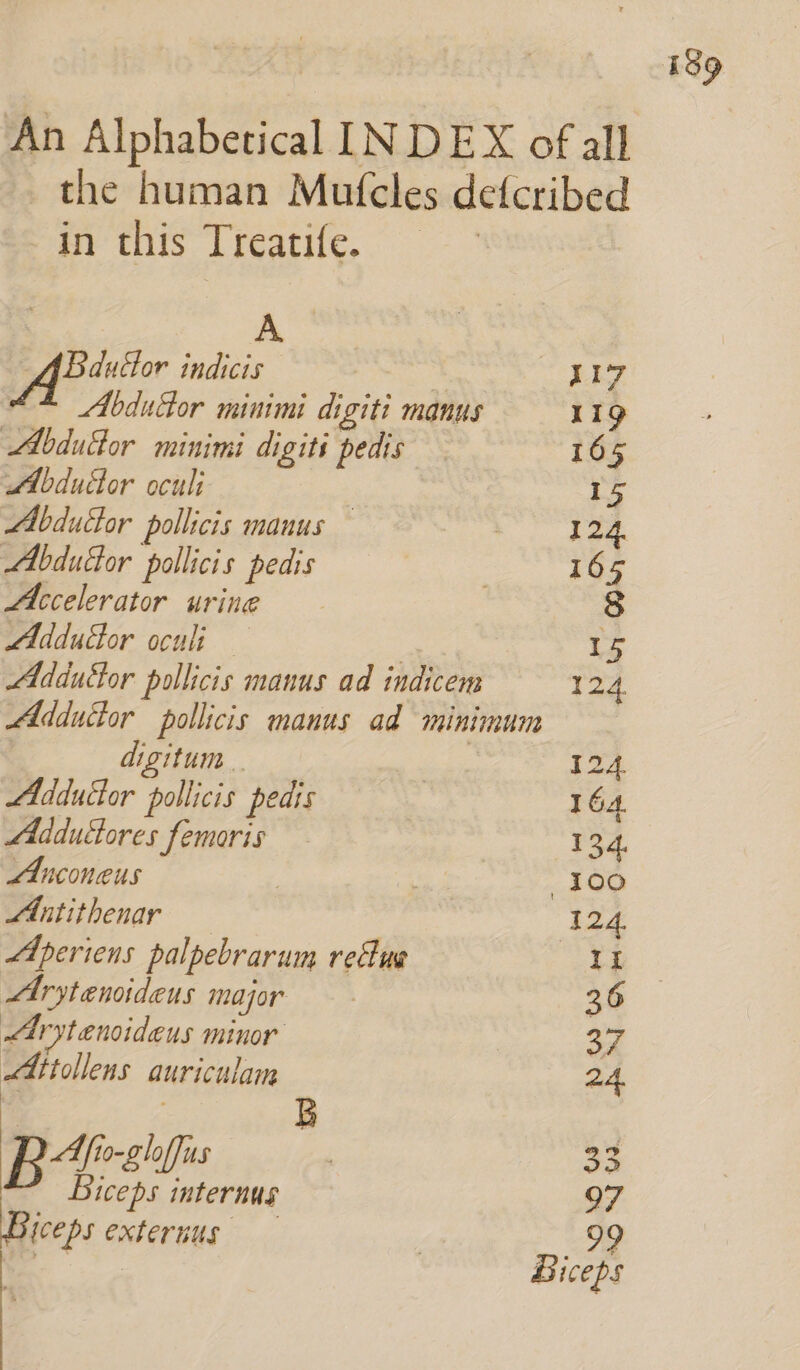 189
An Alphabetical INDEX of all
the human Muſcles deſcribed
in this Treatiſe.
A
ABductor indicis 117
Abductor minimi digiti manus 119
Abductor minimi digiti pedis 165
Abductor oculi 15
Abductor pollicis manus 124
Abductor pollicis pedis 165
Accelerator urinæ 8
Adductor oculi 15
Adductor pollicis manus ad indicem 124
Adductor pollicis manus ad minimum
digitum 124
Adductor pollicis pedis 164
Adductores femoris 134
Anconæus 100
Antithenar 124
Aperiens palpebrarum rectus 11
Arytænoidæus major 36
Arytænoidæus minor 37
Attollens auriculam 24
B
BAſio-gloſſus 33
Biceps internus 97
Biceps externus 99
Biceps